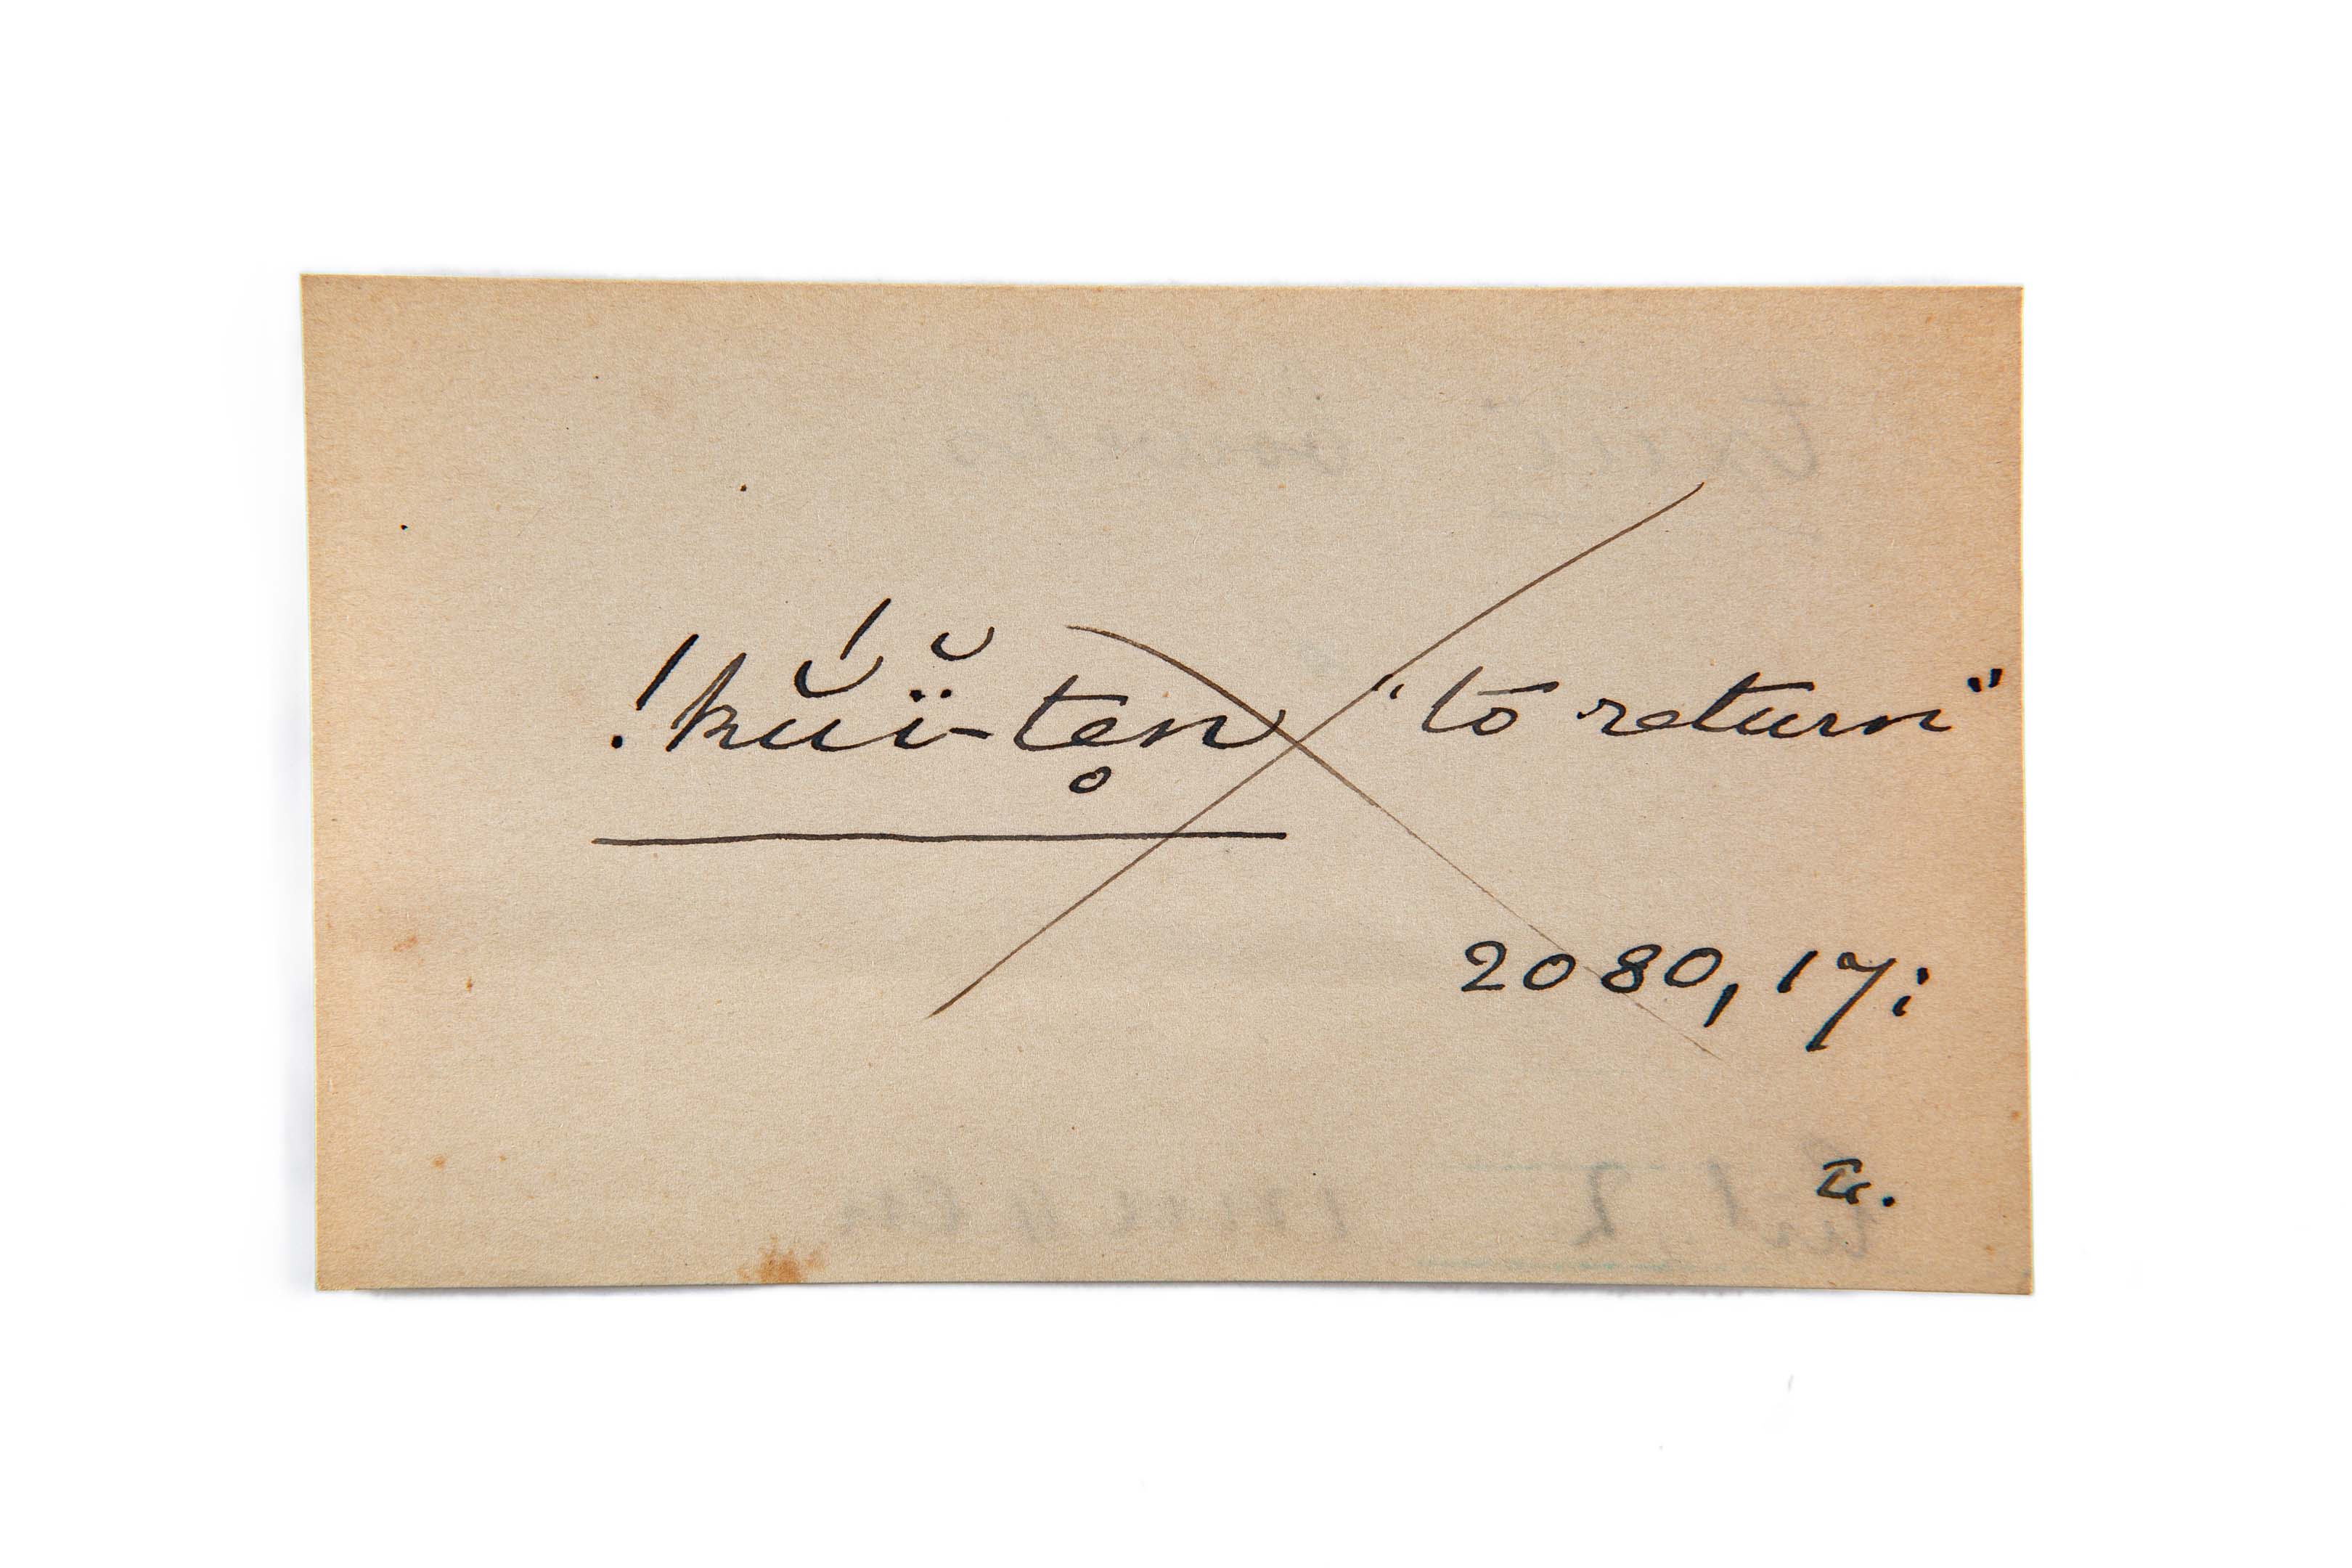 !kŭ́ï̆-te̥n "to return"
2080, 17;